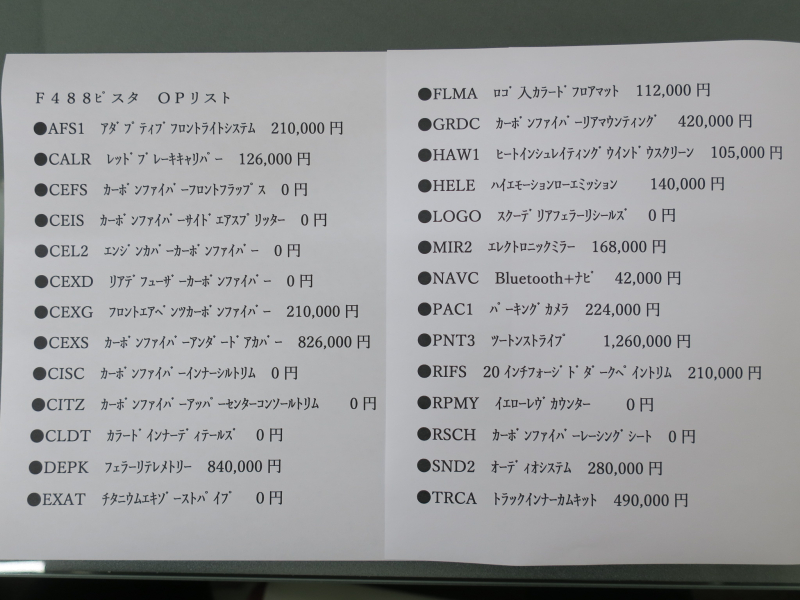 Ｆ４８８ﾋﾟスタ　ＯＰリスト
●AFS1　ｱﾀﾞﾌﾟﾃｨﾌﾞﾌﾛﾝﾄﾗｲﾄｼｽﾃﾑ　210,000 円
●CALR　ﾚｯﾄﾞﾌﾞﾚｰｷｷｬﾘﾊﾟｰ　126,000 円
●CEFS　ｶｰﾎﾞﾝﾌｧｲﾊﾞｰﾌﾛﾝﾄﾌﾗｯﾌﾟｽ　0 円
●CEIS　ｶｰﾎﾞﾝﾌｧｲﾊﾞｰｻｲﾄﾞｴｱｽﾌﾟﾘｯﾀｰ　0 円
●CEL2　ｴﾝｼﾞﾝｶﾊﾞｰｶｰﾎﾞﾝﾌｧｲﾊﾞｰ　0 円
●CEXD　ﾘｱﾃﾞﾌｭｰｻﾞｰｶｰﾎﾞﾝﾌｧｲﾊﾞｰ　0 円
●CEXG　ﾌﾛﾝﾄｴｱﾍﾞﾝﾂｶｰﾎﾞﾝﾌｧｲﾊﾞｰ　210,000 円
●CEXS　ｶｰﾎﾞﾝﾌｧｲﾊﾞｰｱﾝﾀﾞｰﾄﾞｱｶﾊﾞｰ　826,000 円
●CISC　ｶｰﾎﾞﾝﾌｧｲﾊﾞｰｲﾝﾅｰｼﾙﾄﾘﾑ　0 円
●CITZ　ｶｰﾎﾞﾝﾌｧｲﾊﾞｰｱｯﾊﾟｰｾﾝﾀｰｺﾝｿｰﾙﾄﾘﾑ　　0 円
●CLDT　ｶﾗｰﾄﾞｲﾝﾅｰﾃﾞｨﾃｰﾙｽﾞ　0 円
●DEPK　ﾌｪﾗｰﾘﾃﾚﾒﾄﾘｰ　840,000 円
●EXAT　ﾁﾀﾆｳﾑｴｷｿﾞｰｽﾄﾊﾟｲﾌﾟ　0 円
●FLMA　ﾛｺﾞ入ｶﾗｰﾄﾞﾌﾛｱﾏｯﾄ　112,000 円
●GRDC　ｶｰﾎﾞﾝﾌｧｲﾊﾞｰﾘｱﾏｳﾝﾃｨﾝｸﾞ　420,000 円
●HAW1　ﾋｰﾄｲﾝｼｭﾚｲﾃｨﾝｸﾞｳｲﾝﾄﾞｳｽｸﾘｰﾝ　105,000 円
●HELE　ﾊｲｴﾓｰｼｮﾝﾛｰｴﾐｯｼｮﾝ　　140,000 円
●LOGO　ｽｸｰﾃﾞﾘｱﾌｪﾗｰﾘｼｰﾙｽﾞ　0 円
●MIR2　ｴﾚｸﾄﾛﾆｯｸﾐﾗｰ　168,000 円
●NAVC　Bluetooth+ﾅﾋﾞ　42,000 円
●PAC1　ﾊﾟｰｷﾝｸﾞｶﾒﾗ　224,000 円
●PNT3　ﾂｰﾄﾝｽﾄﾗｲﾌﾟ　　1,260,000 円
●RIFS　20 ｲﾝﾁﾌｫｰｼﾞﾄﾞﾀﾞｰｸﾍﾟｲﾝﾄﾘﾑ　210,000 円
●RPMY　ｲｴﾛｰﾚｳﾞｶｳﾝﾀｰ　　0 円
●RSCH　ｶｰﾎﾞﾝﾌｧｲﾊﾞｰﾚｰｼﾝｸﾞｼｰﾄ　0 円
●SND2　ｵｰﾃﾞｨｵｼｽﾃﾑ　280,000 円
●TRCA　ﾄﾗｯｸｲﾝﾅｰｶﾑｷｯﾄ　490,000 円